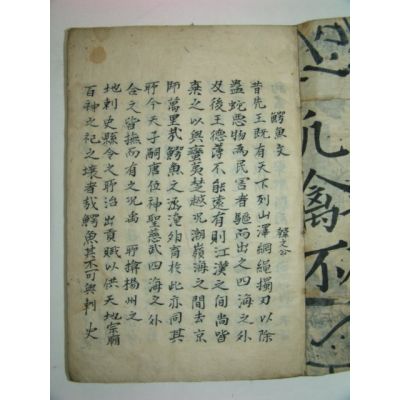 鰐魚文 韓文公
昔先王既有天下列山澤網繩擉刃以除
蟲蛇惡物爲民害者驅而出之四海之外
及後王德薄不能遠有則江漢之間尚皆
棄之以與蠻夷楚越况潮嶺海之間去京
師萬里哉鰐魚之涵淹卵育於此亦同其
所今天子嗣唐位神聖慈武四海之外
合之皆撫而有之况禹 所揜揚州之
地刺史縣令之所治出貢賦以供天地宗廟
百神之祀之壤者哉鰐魚其不可與刺史